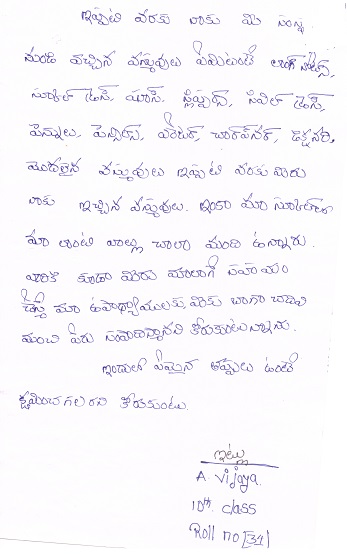 ఇప్పటి వరకు నాకు మీ సంస్థ
నుండి వచ్చిన వస్తువులు ఏమిటంటే లాంగ్ నోట్స్,
స్కూల్ డ్రెస్, షూస్, స్లిప్పర్స్, సివిల్ డ్రెస్,
పెన్నులు, పెన్సిల్స్, ఎరేజర్, షార్ప్‌నర్, డిక్షనరీ,
మొదలైన వస్తువులు ఇప్పటి వరకు మీరు
నాకు ఇచ్చిన వస్తువులు. ఇంకా మా స్కూల్‌లో
మా లాంటి వాల్లు చాలా మంది ఉన్నారు.
వారికి కూడా మీరు ఇలాగే సహాయం
చేస్తే మా ఉపాధ్యాయులకు, మీకు బాగా చదివి
మంచి పేరు సంపాదిస్తానని కోరుకుంటున్నాను.
ఇందులో ఏమైన తప్పులు ఉంటే
క్షమించగలరని కోరుకుంటు.
ఇట్లు
A vijaya.
10th class
Roll no [34]